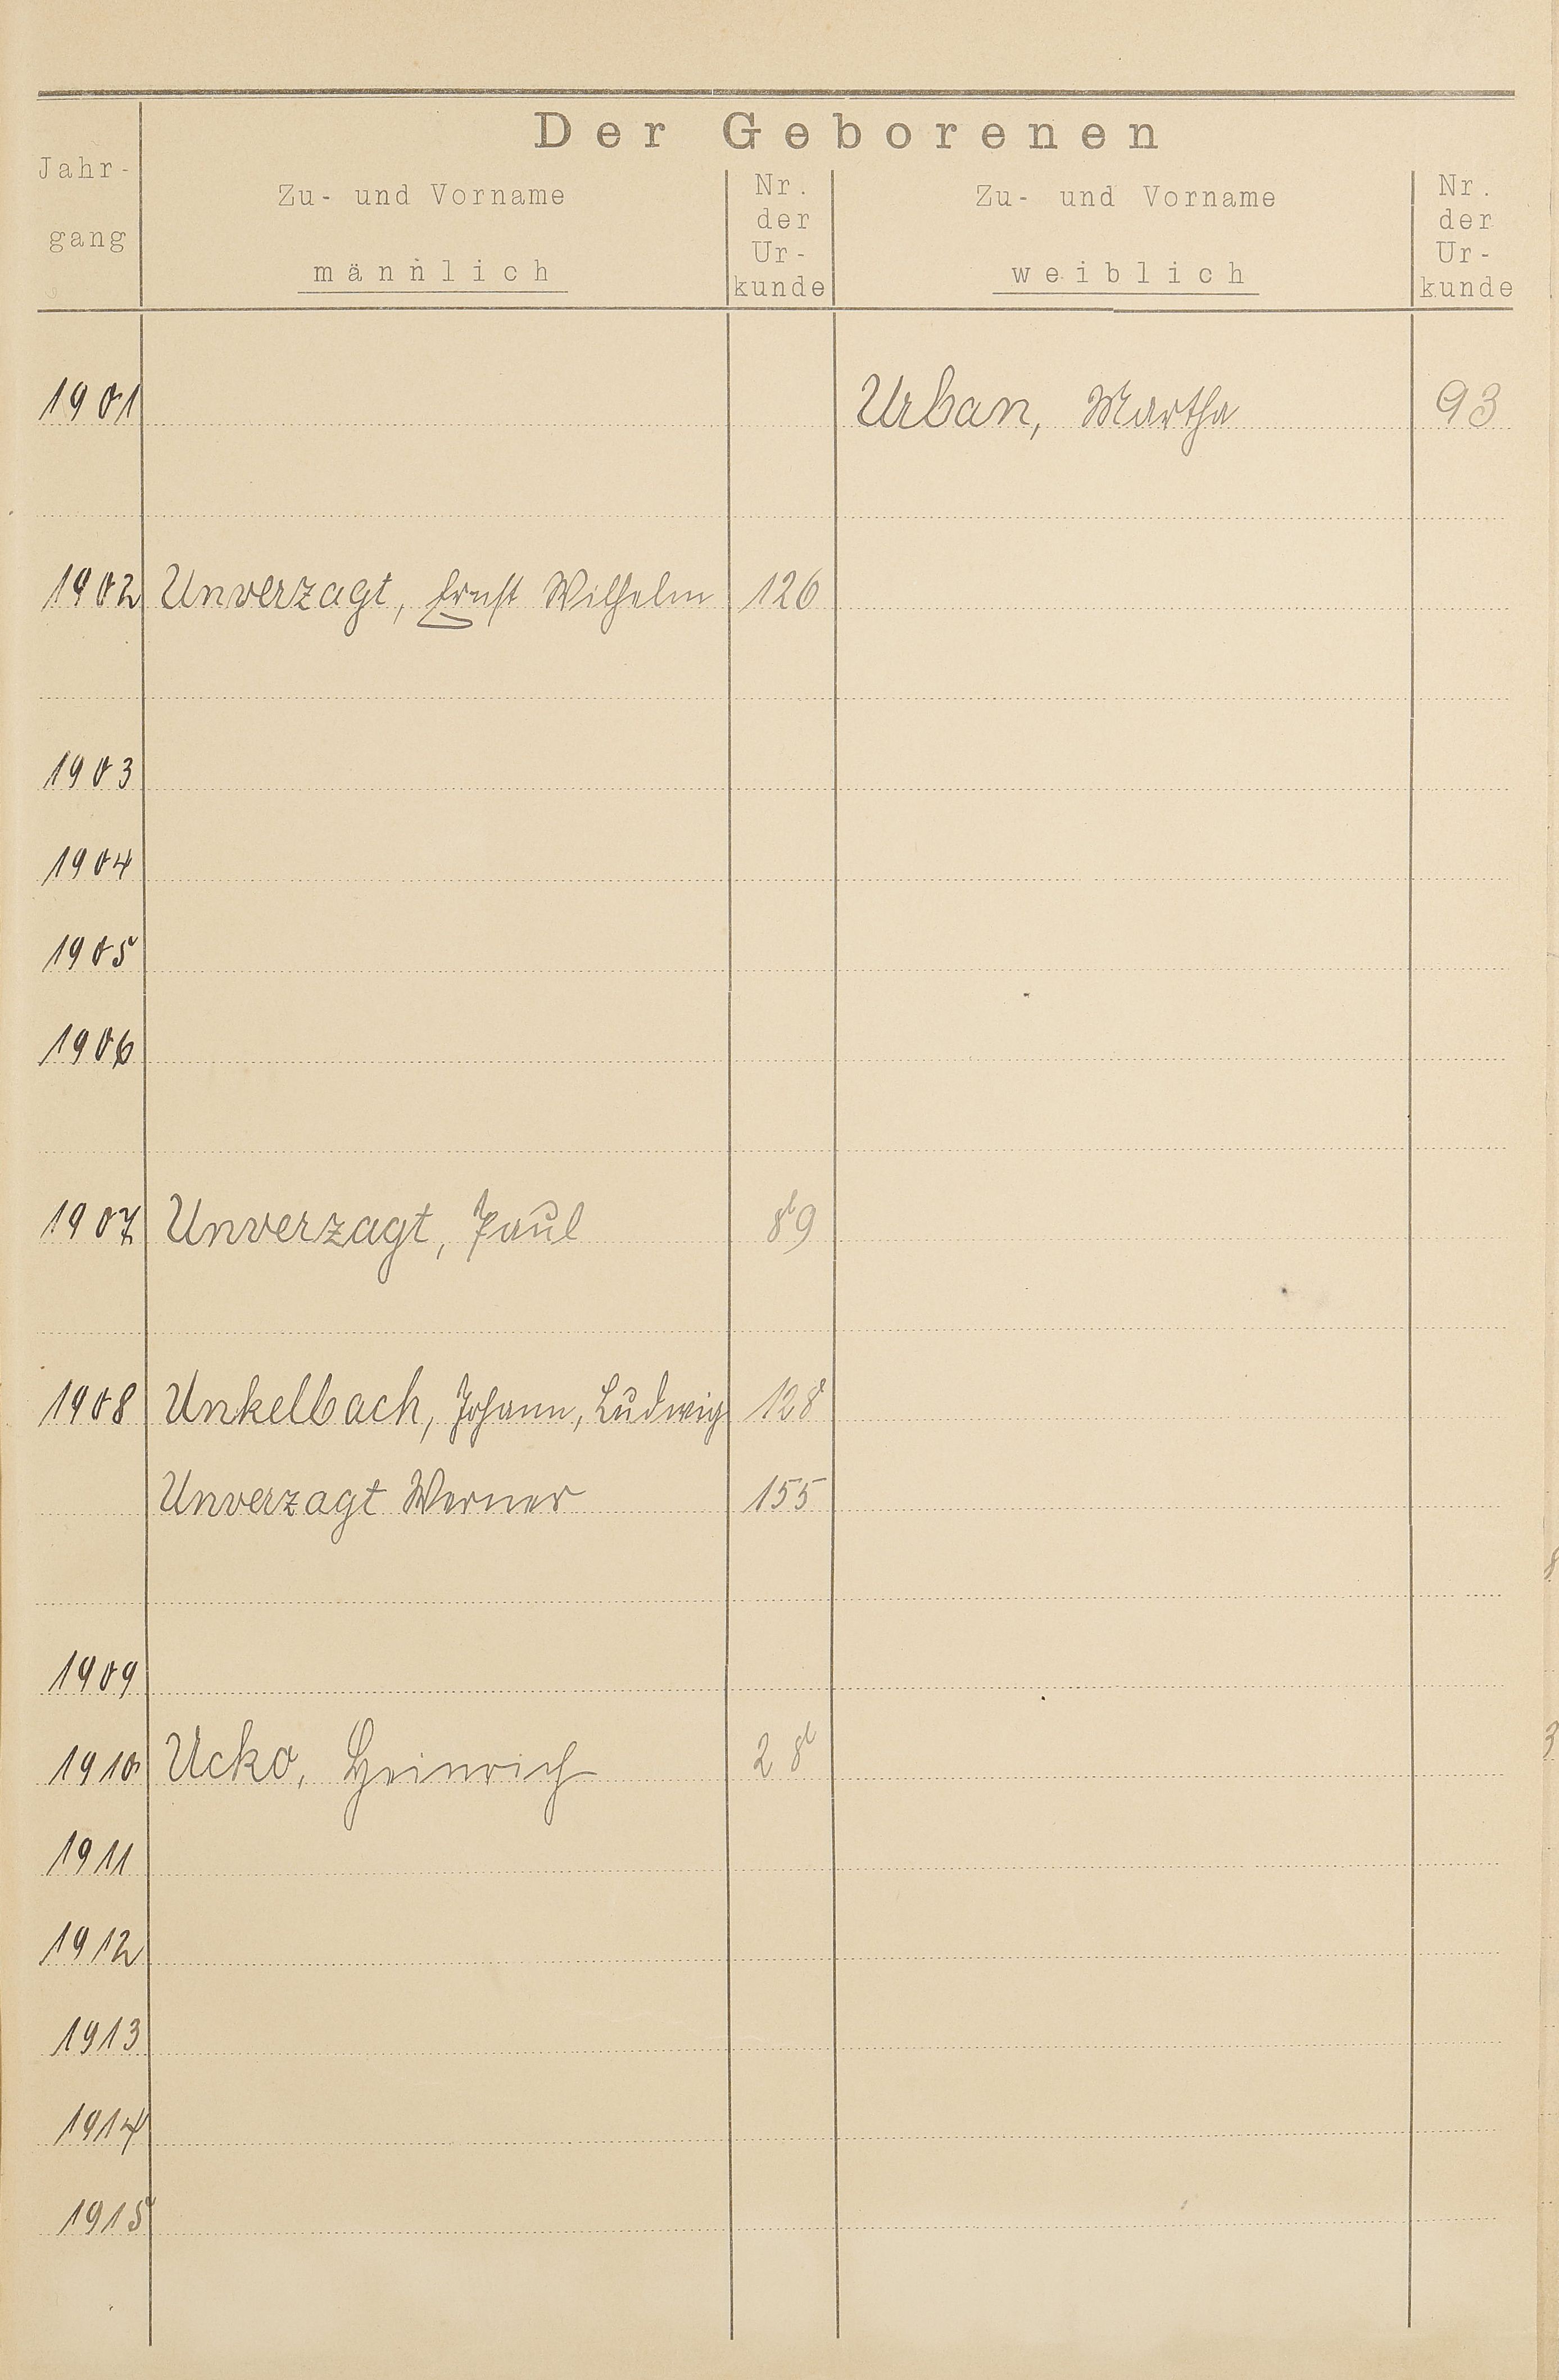 Der Geborenen
Jahr-
gang
Zu- und Vorname
männlich
Nr.
der
Ur-
kunde
Zu- und Vorname
weiblich
Nr.
der
Ur-
kunde
1901 Urban, Martha 93
1902 Unverzagt, Ernst Wilhelm 126
1903
1904
1905
1906
1907 Unverzagt, Paul 89
1908 Unkelbach, Johann, Ludwig 128
Unverzagt Werner 155
1909
1910 Ucko, Heinrich 28
1911
1912
1913
1914
1915